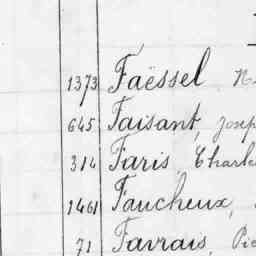 1373 Faëssel
645 Faisant, Josep
314 Faris, Charle
1461 Faucheux,
71 Favrais, Pie